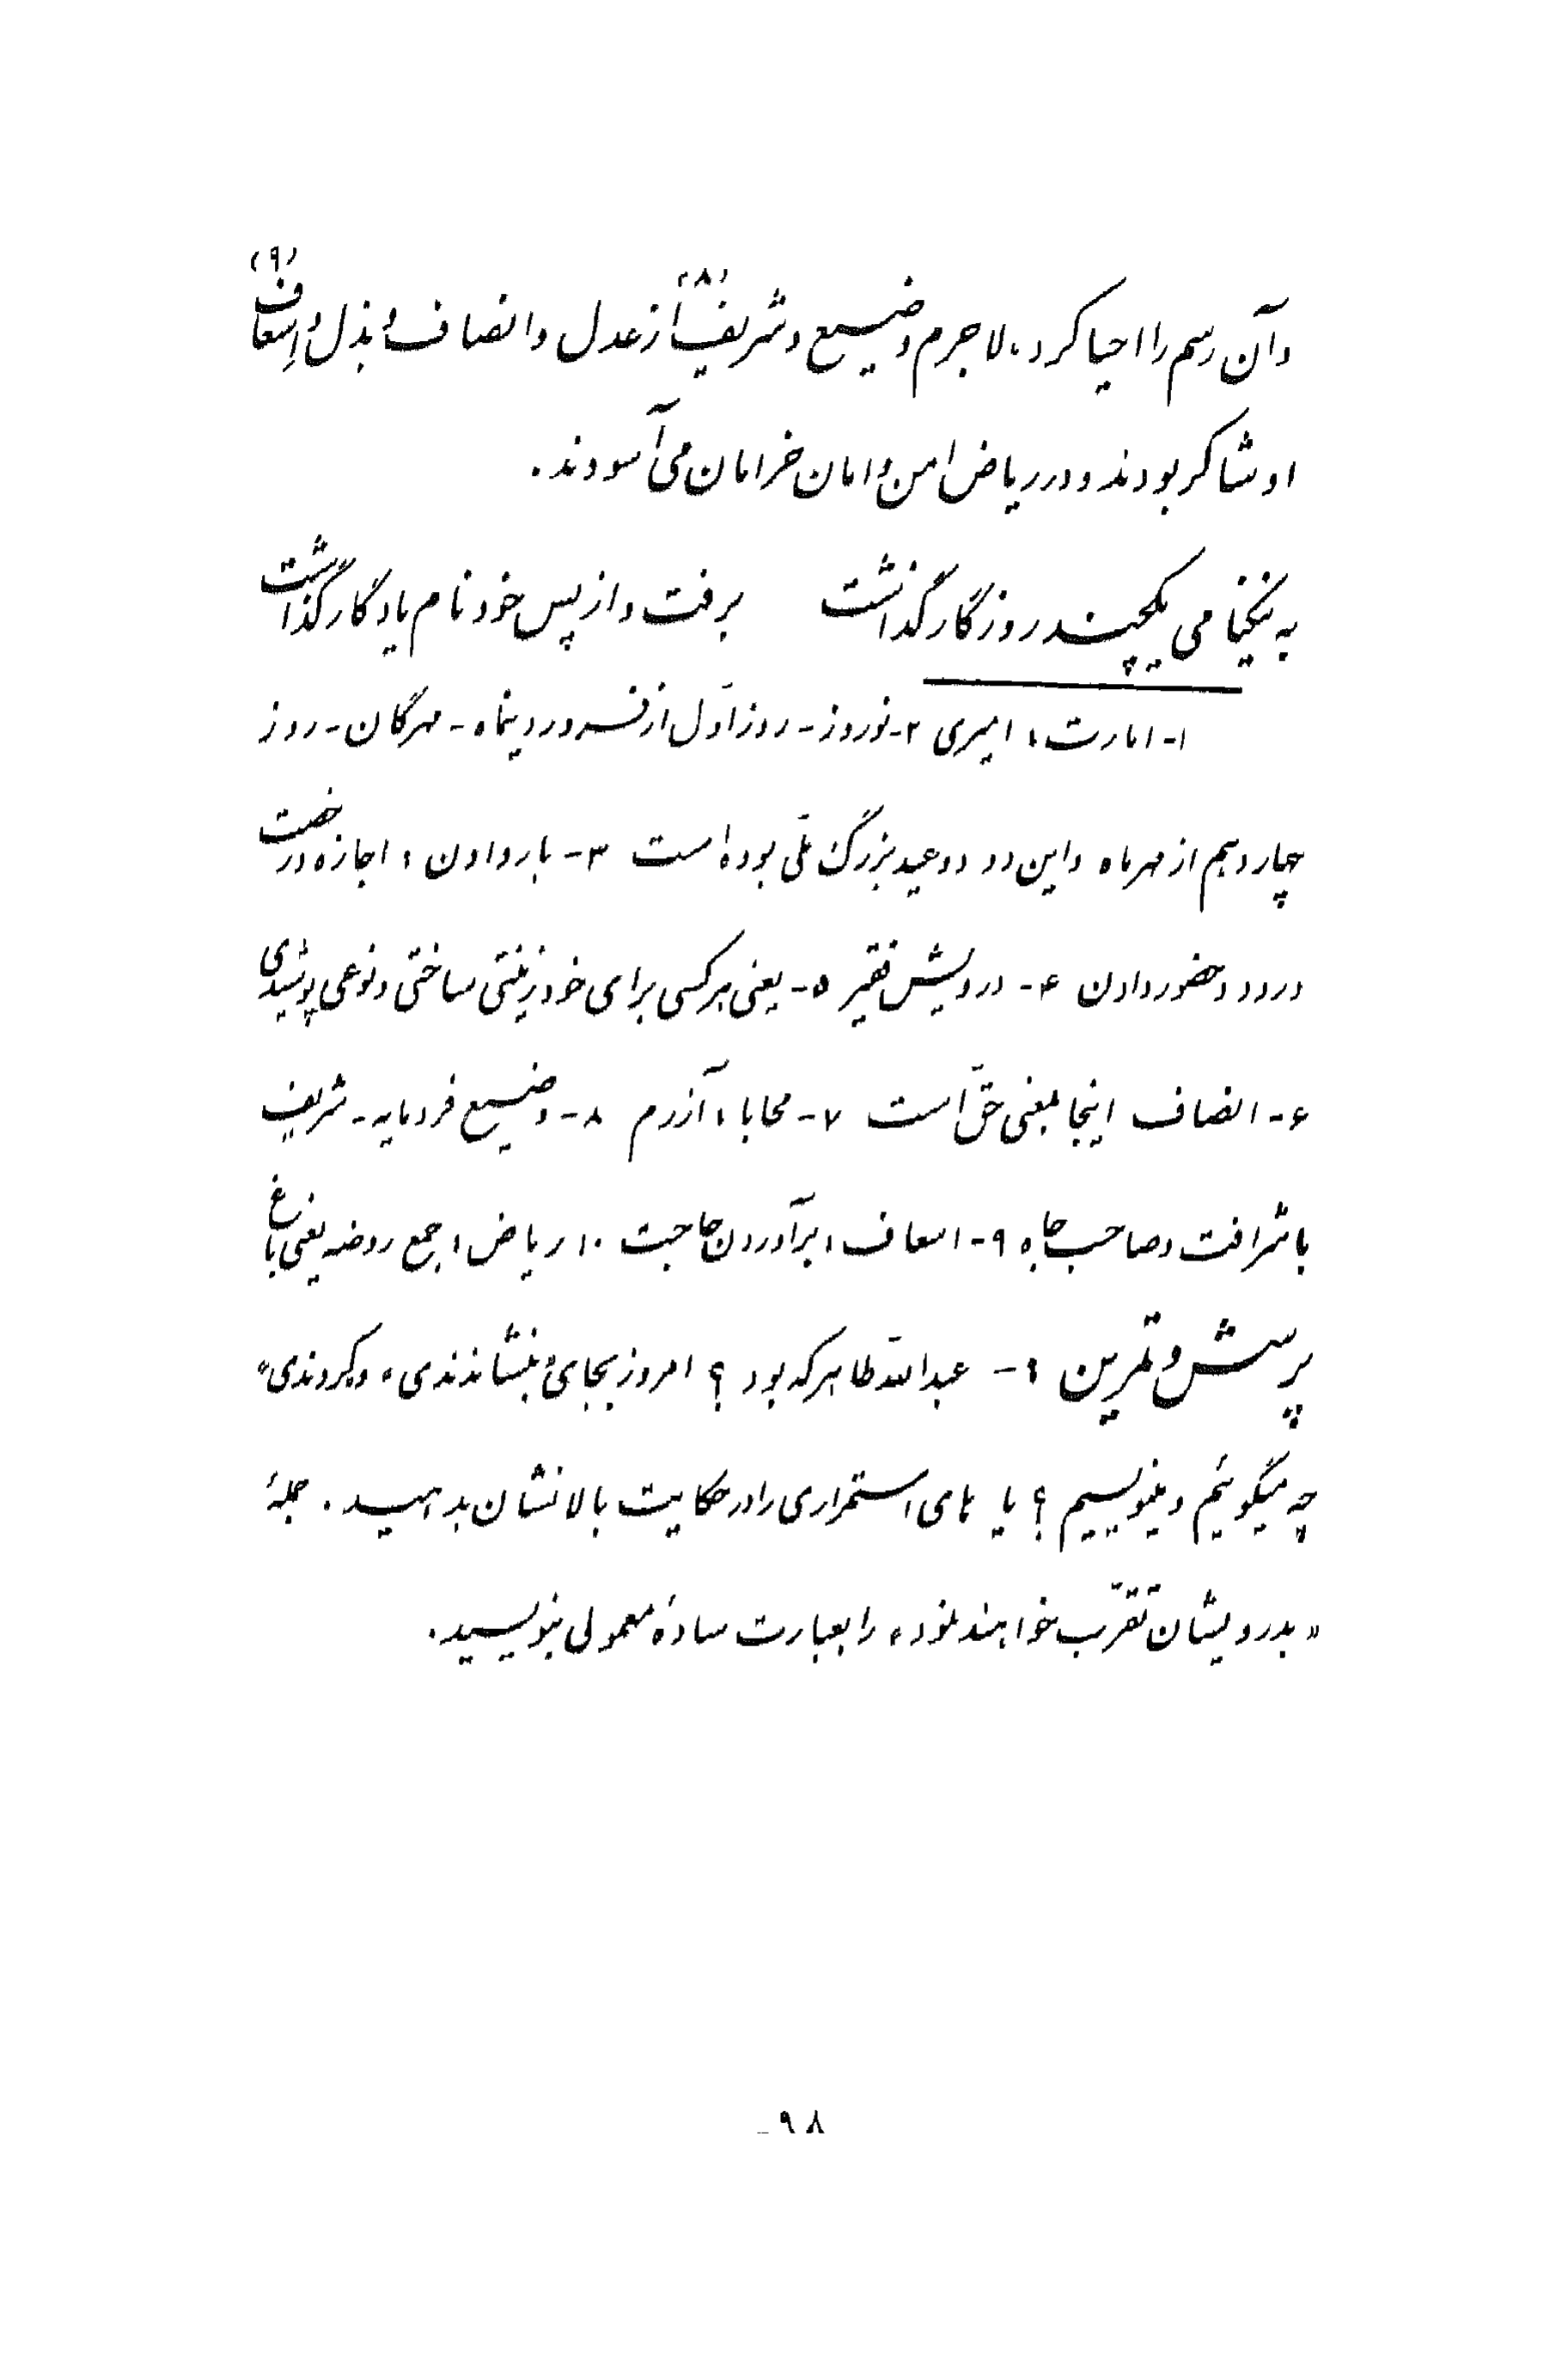 و آن رسم را احیا کرد، لاجرم وضیع و شریف (۸) از عدل و انصاف و بذل و اِسعاف (۹)
او شاکر بودند و در ریاض امن و امان خرامان می‌آسودند.
به نیکنامی یکچند روزگار گذاشت برفت و از پس خود نام یادگار گذاشت
۱- امارت، امیری ۲- نوروز - روز اوّل از فروردینماه - مهرگان - روز
چهاردهم از مهرماه و این دو دو عید بزرگ ملّی بوده است ۳- بار دادن، اجازه و رخصت
ورود و حضور دادن ۴- درویش فقیر ۵- یعنی هر کسی برای خود زینتی ساختی و نوعی پوشیدی
۶- انصاف اینجا بمعنی حقّ است ۷- محابا، آزرم ۸- وضیع فرومایه - شریف
با شرافت و صاحب جاه ۹- اسعاف، برآوردن حاجت ۱۰ ریاض، جمع روضه یعنی باغ
پرسش و تمرین ۱- عبداللّه طاهر که بود؟ امروز بجای «بنشاندندی» و «کردندی»
چه میگوئیم و مینویسیم؟ یا های استمراری را در حکایت بالا نشان بدهید. جملهٔ
«بدرویشان تقرّب خواهند نمود» را بعبارت سادهٔ معمولی بنویسید.
۹۸-